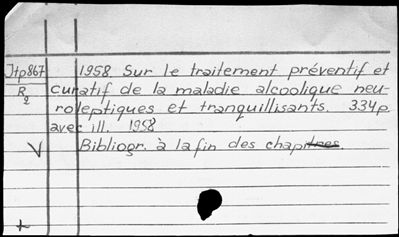 Jtp867
R
2
V
+
1958 Sur le traitement préventif et
curatif de la maladie alcoolique neu-
roleptiques et tranquillisants. 334p
avec ill. 1958
Bibliogr. à la fin des chapitres.